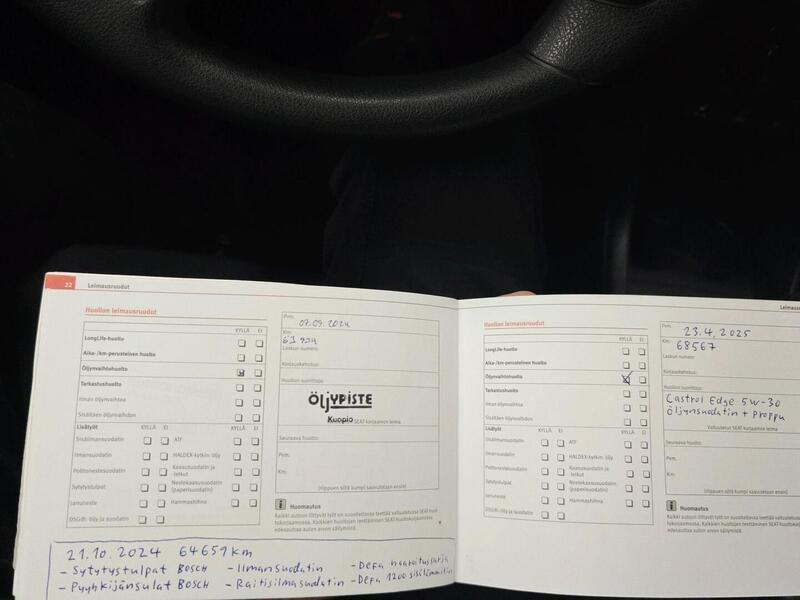 22 Leimausruudut
Huollon leimausruudut
KYLLÄ EI
LongLife-huolto
Aika-/km-perusteinen huolto
Öljynvaihtohuolto
Tarkastushuolto
Ilman öljynvaihtoa
Sisältäen öljynvaihdon
Lisätyöt KYLLÄ EI KYLLÄ EI
Sisäilmansuodatin ATF
Ilmansuodatin HALDEX-kytkin: öljy
Polttonestesuodatin Kaasusuodatin ja -letkut
Sytytystulpat Nestekaasusuodatin (paperisuodatin)
Jarruneste Hammashihna
DSG®: öljy ja suodatin
Pvm. 07.09.2024
Km:
Laskun numero:
Korjauskehotus:
Huollon suorittaja:
ÖLJYPISTE
Kuopio
SEAT-korjaamon leima
Seuraava huolto:
Pvm.
Km:
(riippuen siitä kumpi saavutetaan ensin)
Huomautus
Kaikki autoon liittyvät työt on suositeltavaa teettää valtuutetussa SEAT-huoltokorjaamossa. Kaikkien huoltojen teettäminen SEAT-huoltokorjaamossa edesauttaa auton arvon säilymistä.
21.10.2024 64659km
- Sytytystulpat BOSCH - Ilmansuodatin - Defa haaroitussarja
- Pyyhkijänsulat BOSCH - Raitisilmasuodatin - Defa 1200 sisälämmitin
Huollon leimausruudut
KYLLÄ EI
LongLife-huolto
Aika-/km-perusteinen huolto
Öljynvaihtohuolto
Tarkastushuolto
Ilman öljynvaihtoa
Sisältäen öljynvaihdon
Lisätyöt KYLLÄ EI KYLLÄ EI
Sisäilmansuodatin ATF
Ilmansuodatin HALDEX-kytkin: öljy
Polttonestesuodatin Kaasusuodatin ja -letkut
Sytytystulpat Nestekaasusuodatin (paperisuodatin)
Jarruneste Hammashihna
DSG®: öljy ja suodatin
Pvm. 23.4.2025
Km: 68567
Laskun numero:
Korjauskehotus:
Huollon suorittaja:
Castrol Edge 5W-30
öljynsuodatin + proppu
Valtuutetun SEAT-korjaamon leima
Seuraava huolto:
Pvm.
Km:
(riippuen siitä kumpi saavutetaan ensin)
Huomautus
Kaikki autoon liittyvät työt on suositeltavaa teettää valtuutetussa SEAT-huoltokorjaamossa. Kaikkien huoltojen teettäminen SEAT-huoltokorjaamossa edesauttaa auton arvon säilymistä.